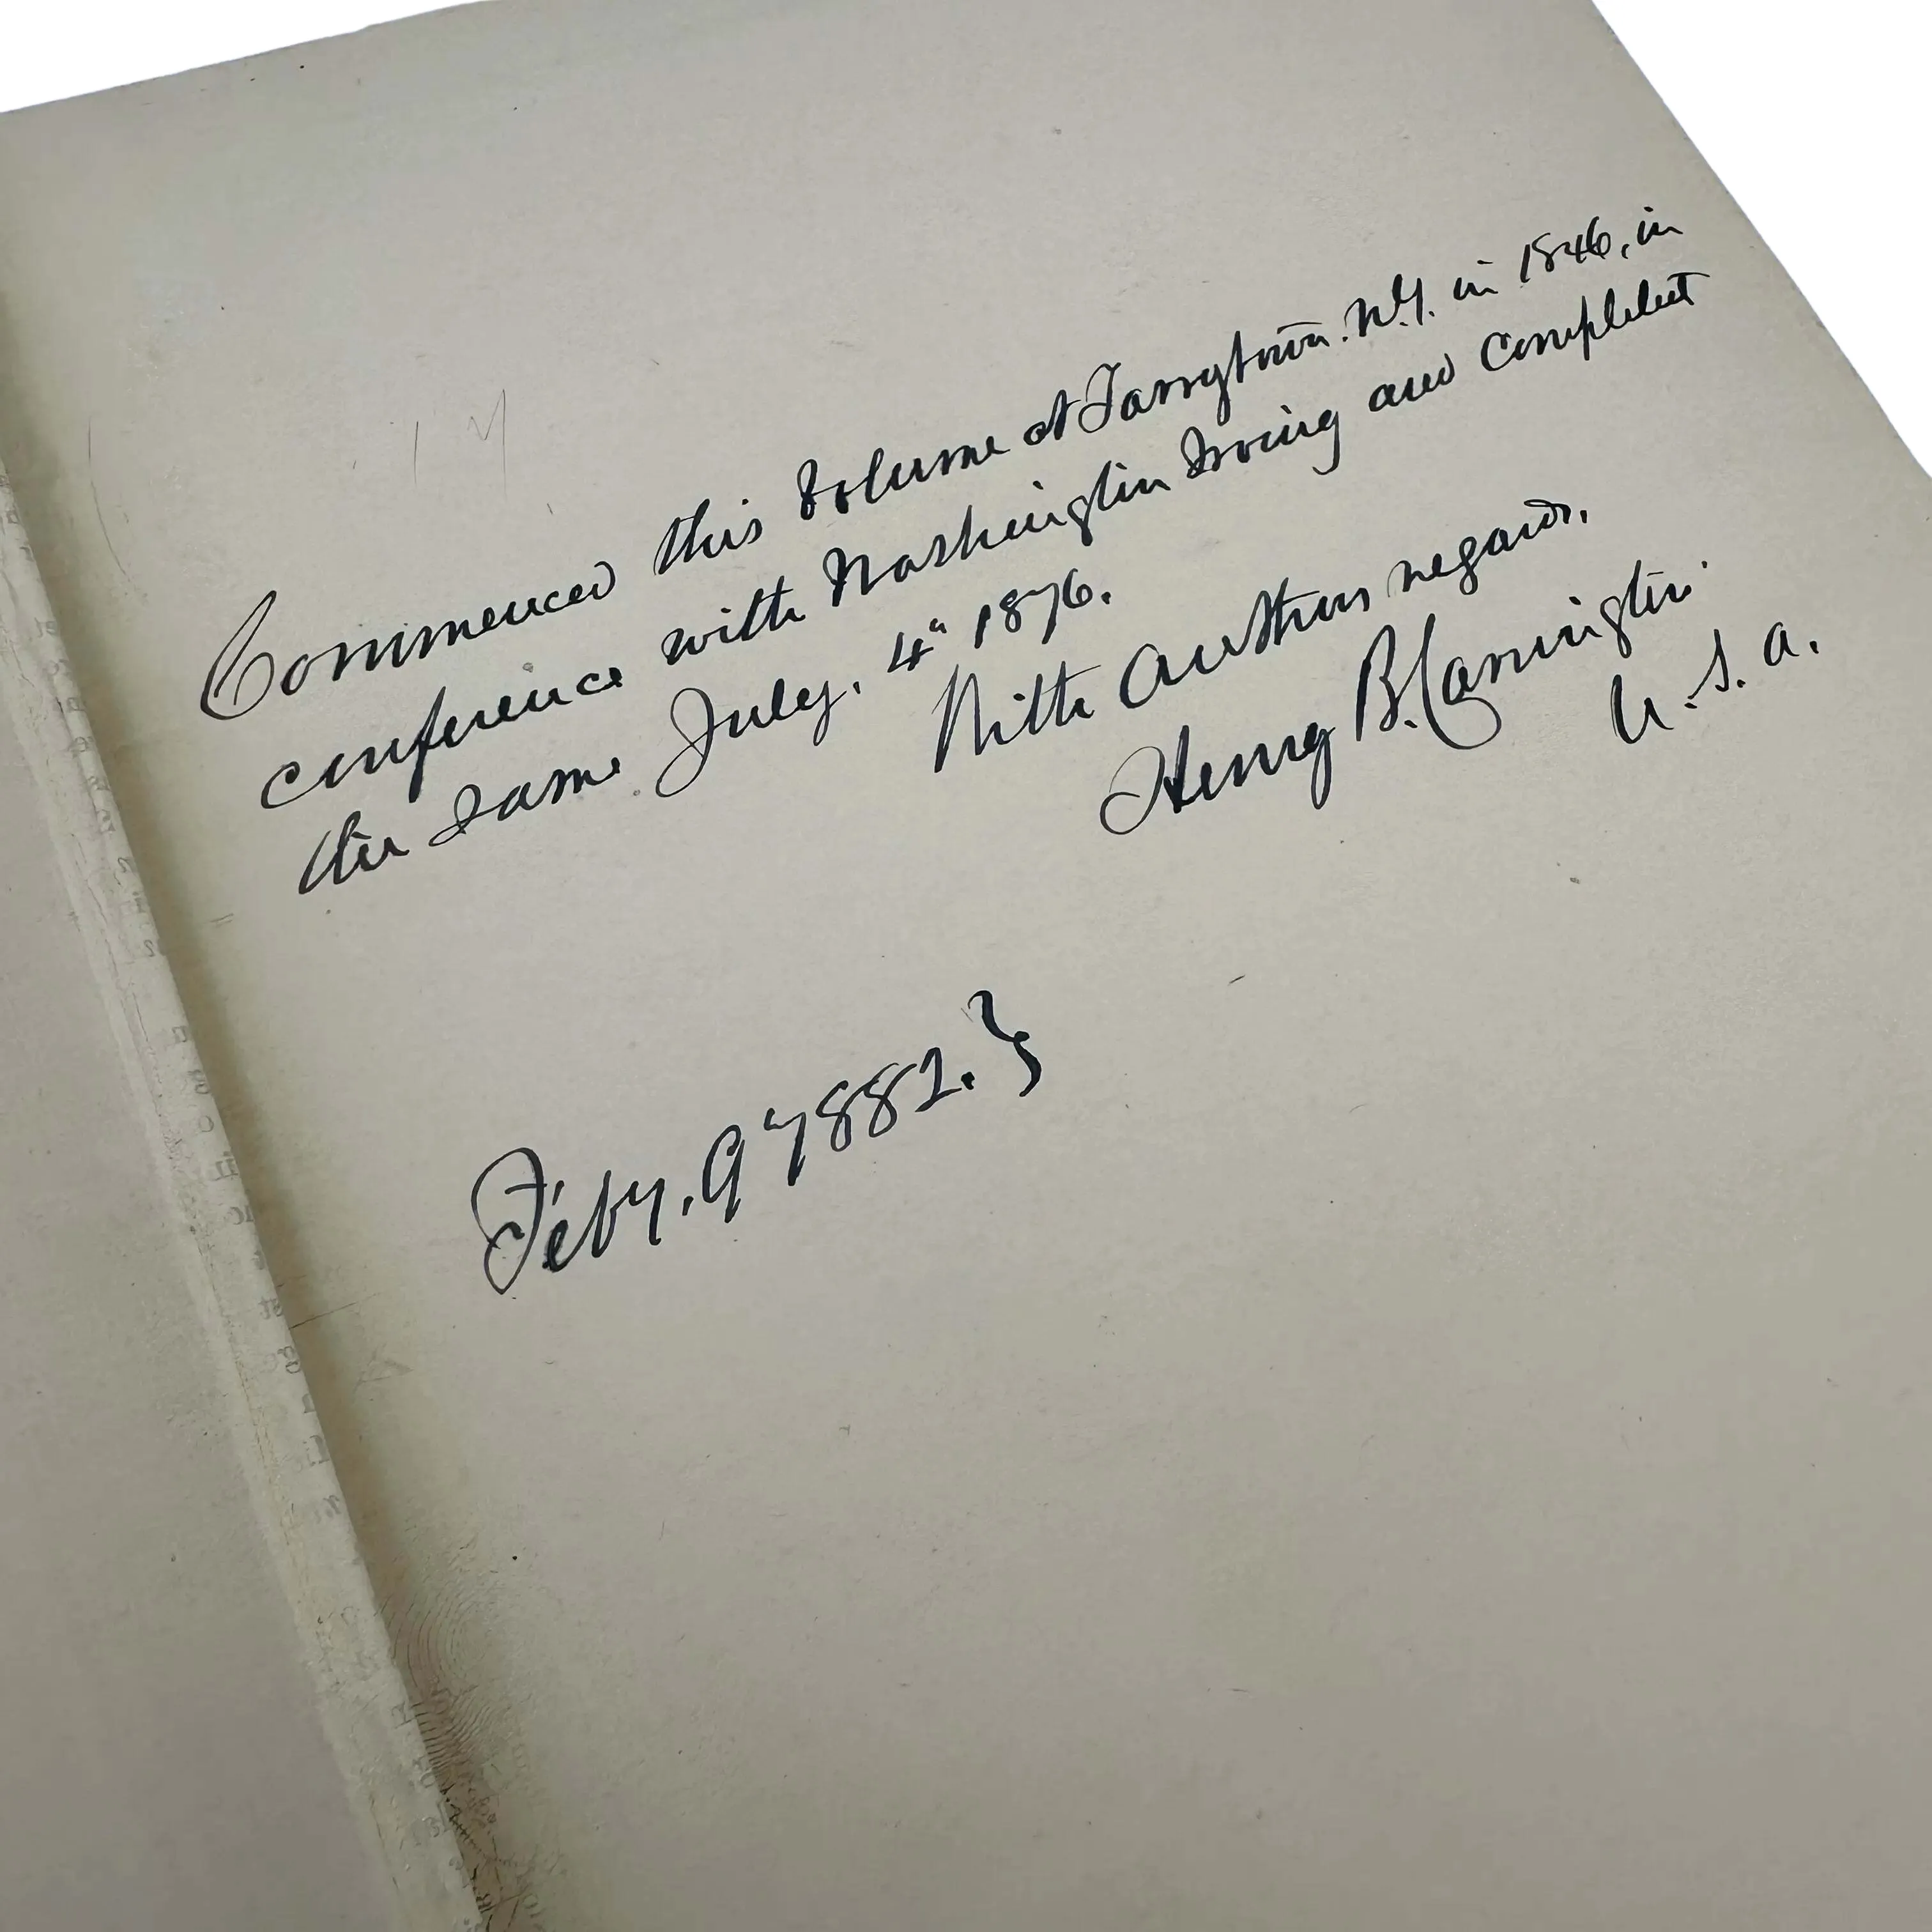 Commenced this Volume at Tarrytown. N.Y. in 1846, in
conference with Washington Irving and Completed
the same July. 4" 1876.
With Authors regards.
Henry B. Carrington.
U.S.A.
Feby. 9" 1882. }